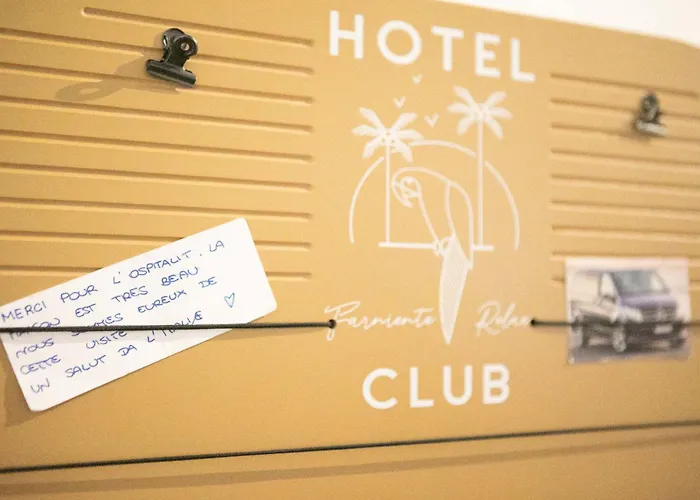 HOTEL
Farniente Relax
CLUB
MERCI POUR L'OSPITALIT. LA
MAISON EST TRES BEAU
NOUS SOMMES EUREUX DE
CETTE VISITE
UN SALUT DA L'ITALIE